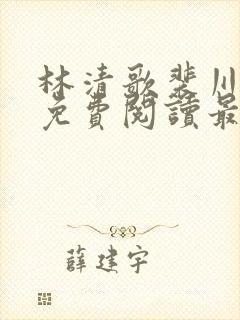 林清歌裴川
免費閱讀最
薛建宇